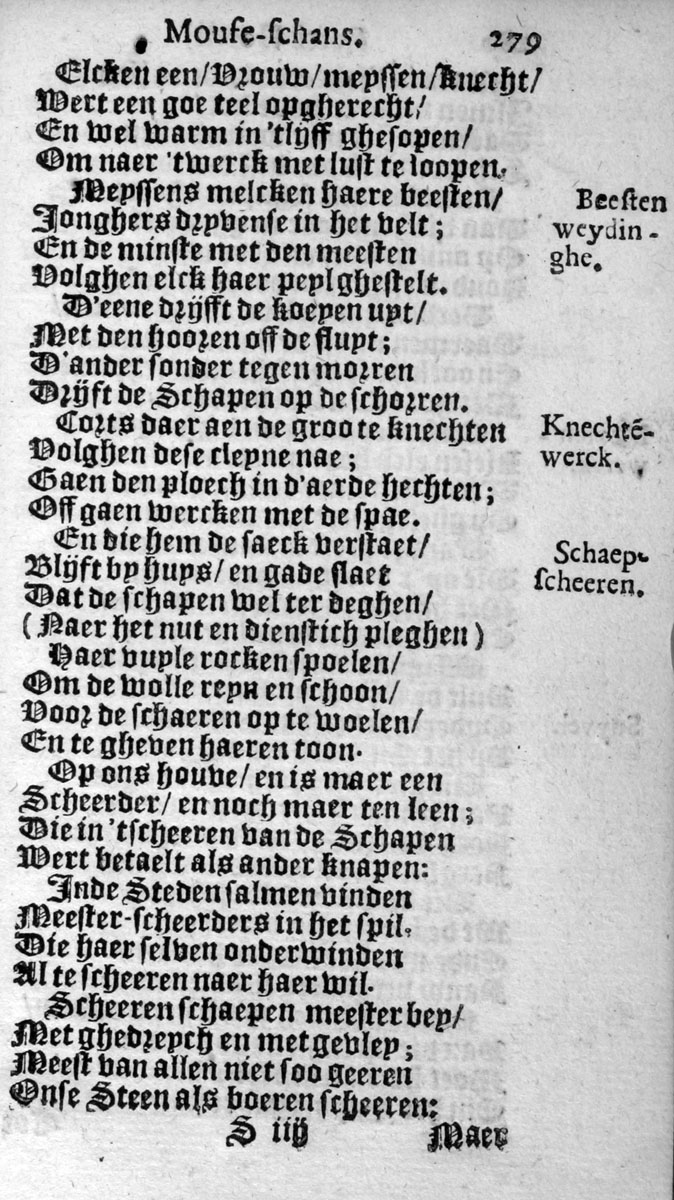 Mouſe-ſchans. 279
Elcken een/ Vrouw/ meyſſen/ knecht/
Wert een goe teel opgherecht/
En wel warm in 'tlijff gheſopen/
Om naer 'twerck met luſt te loopen.
Meyſſens melcken haere beeſten/
Beeſten
Jonghers dryvenſe in het velt;
weydin-
En de minſte met den meeſten
ghe.
Volghen elck haer peylgheſtelt.
D'eene drijfft de koeyen uyt/
Met den hooren off de fluyt;
D'ander ſonder tegen morren
Drijft de Schapen op de ſchorren.
Corts daer aen de groote knechten
Knechtē-
Volghen deſe cleyne nae;
werck.
Gaen den ploech in d'aerde hechten;
Off gaen wercken met de ſpae.
En die hem de ſaeck verſtaet/
Schaep-
Blijft by huys/ en gade ſlaet
ſcheeren.
Dat de ſchapen wel ter deghen/
(Naer het nut en dienſtich pleghen)
Haer vuyle rocken ſpoelen/
Om de wolle reyn en ſchoon/
Voor de ſchaeren op te woelen/
En te gheven haeren toon.
Op ons houve/ en is maer een
Scheerder/ en noch maer ten leen;
Die in 'tſcheeren van de Schapen
Wert betaelt als ander knapen:
Inde Steden ſalmen vinden
Meeſter-ſcheerders in het ſpil.
Die haer ſelven onderwinden
Al te ſcheeren naer haer wil.
Scheeren ſchaepen meeſter bey/
Met ghedreych en met gevley;
Meeſt van allen niet ſoo geeren
Onſe Steen als boeren ſcheeren:
S iiij Maer